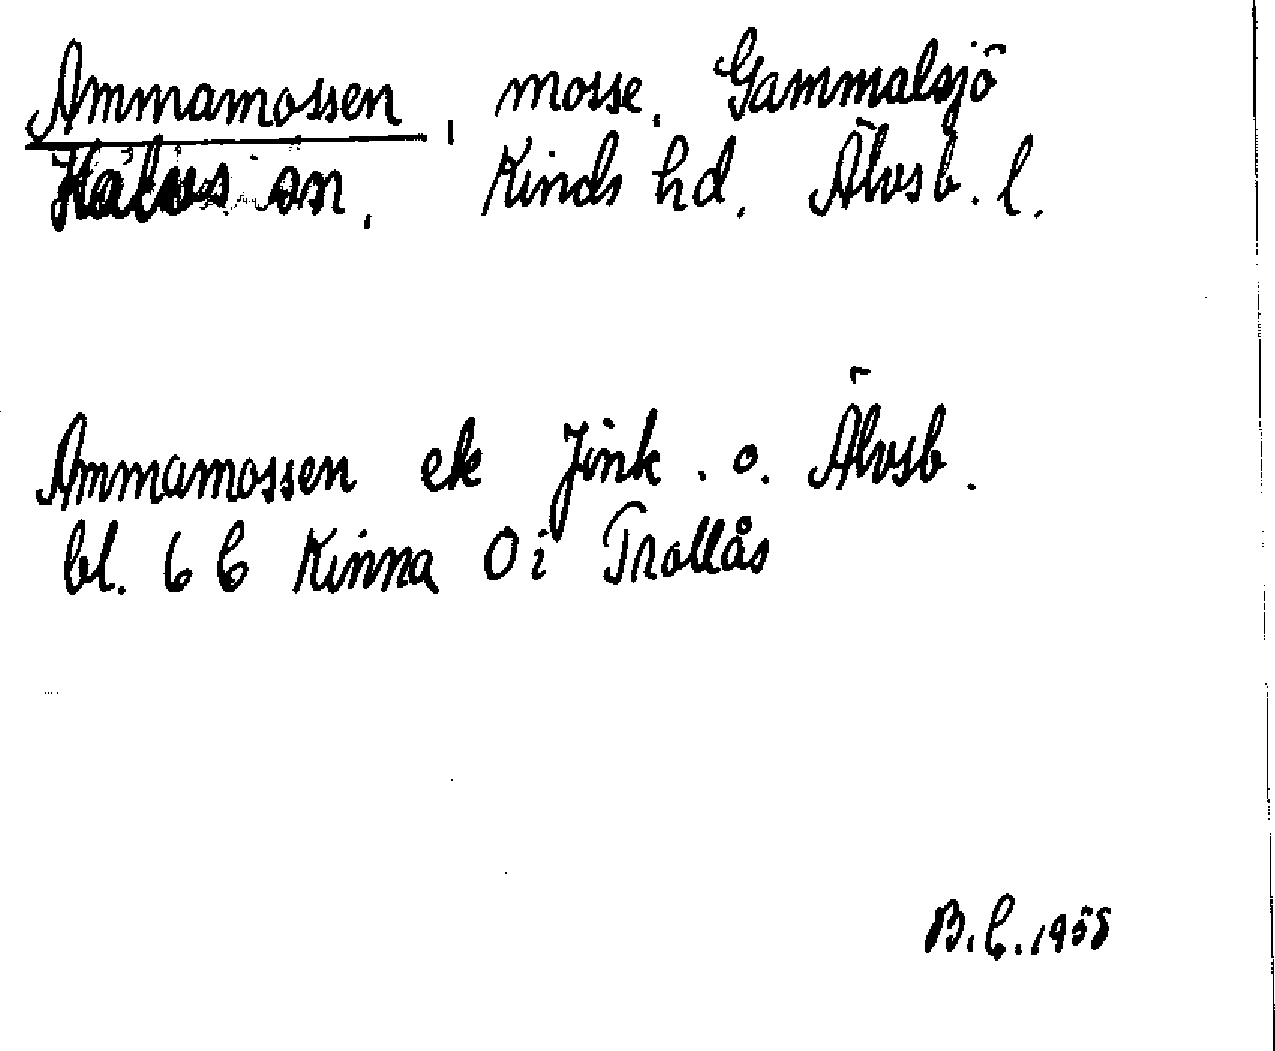 Ammamossen, mosse, Gammalsjö
sn, Kinds hd. Älvsb. l.
Ammamossen ek Jönk. o. Älvsb.
bl. 6 C Kinna Oi Trollås
B.C. 1958